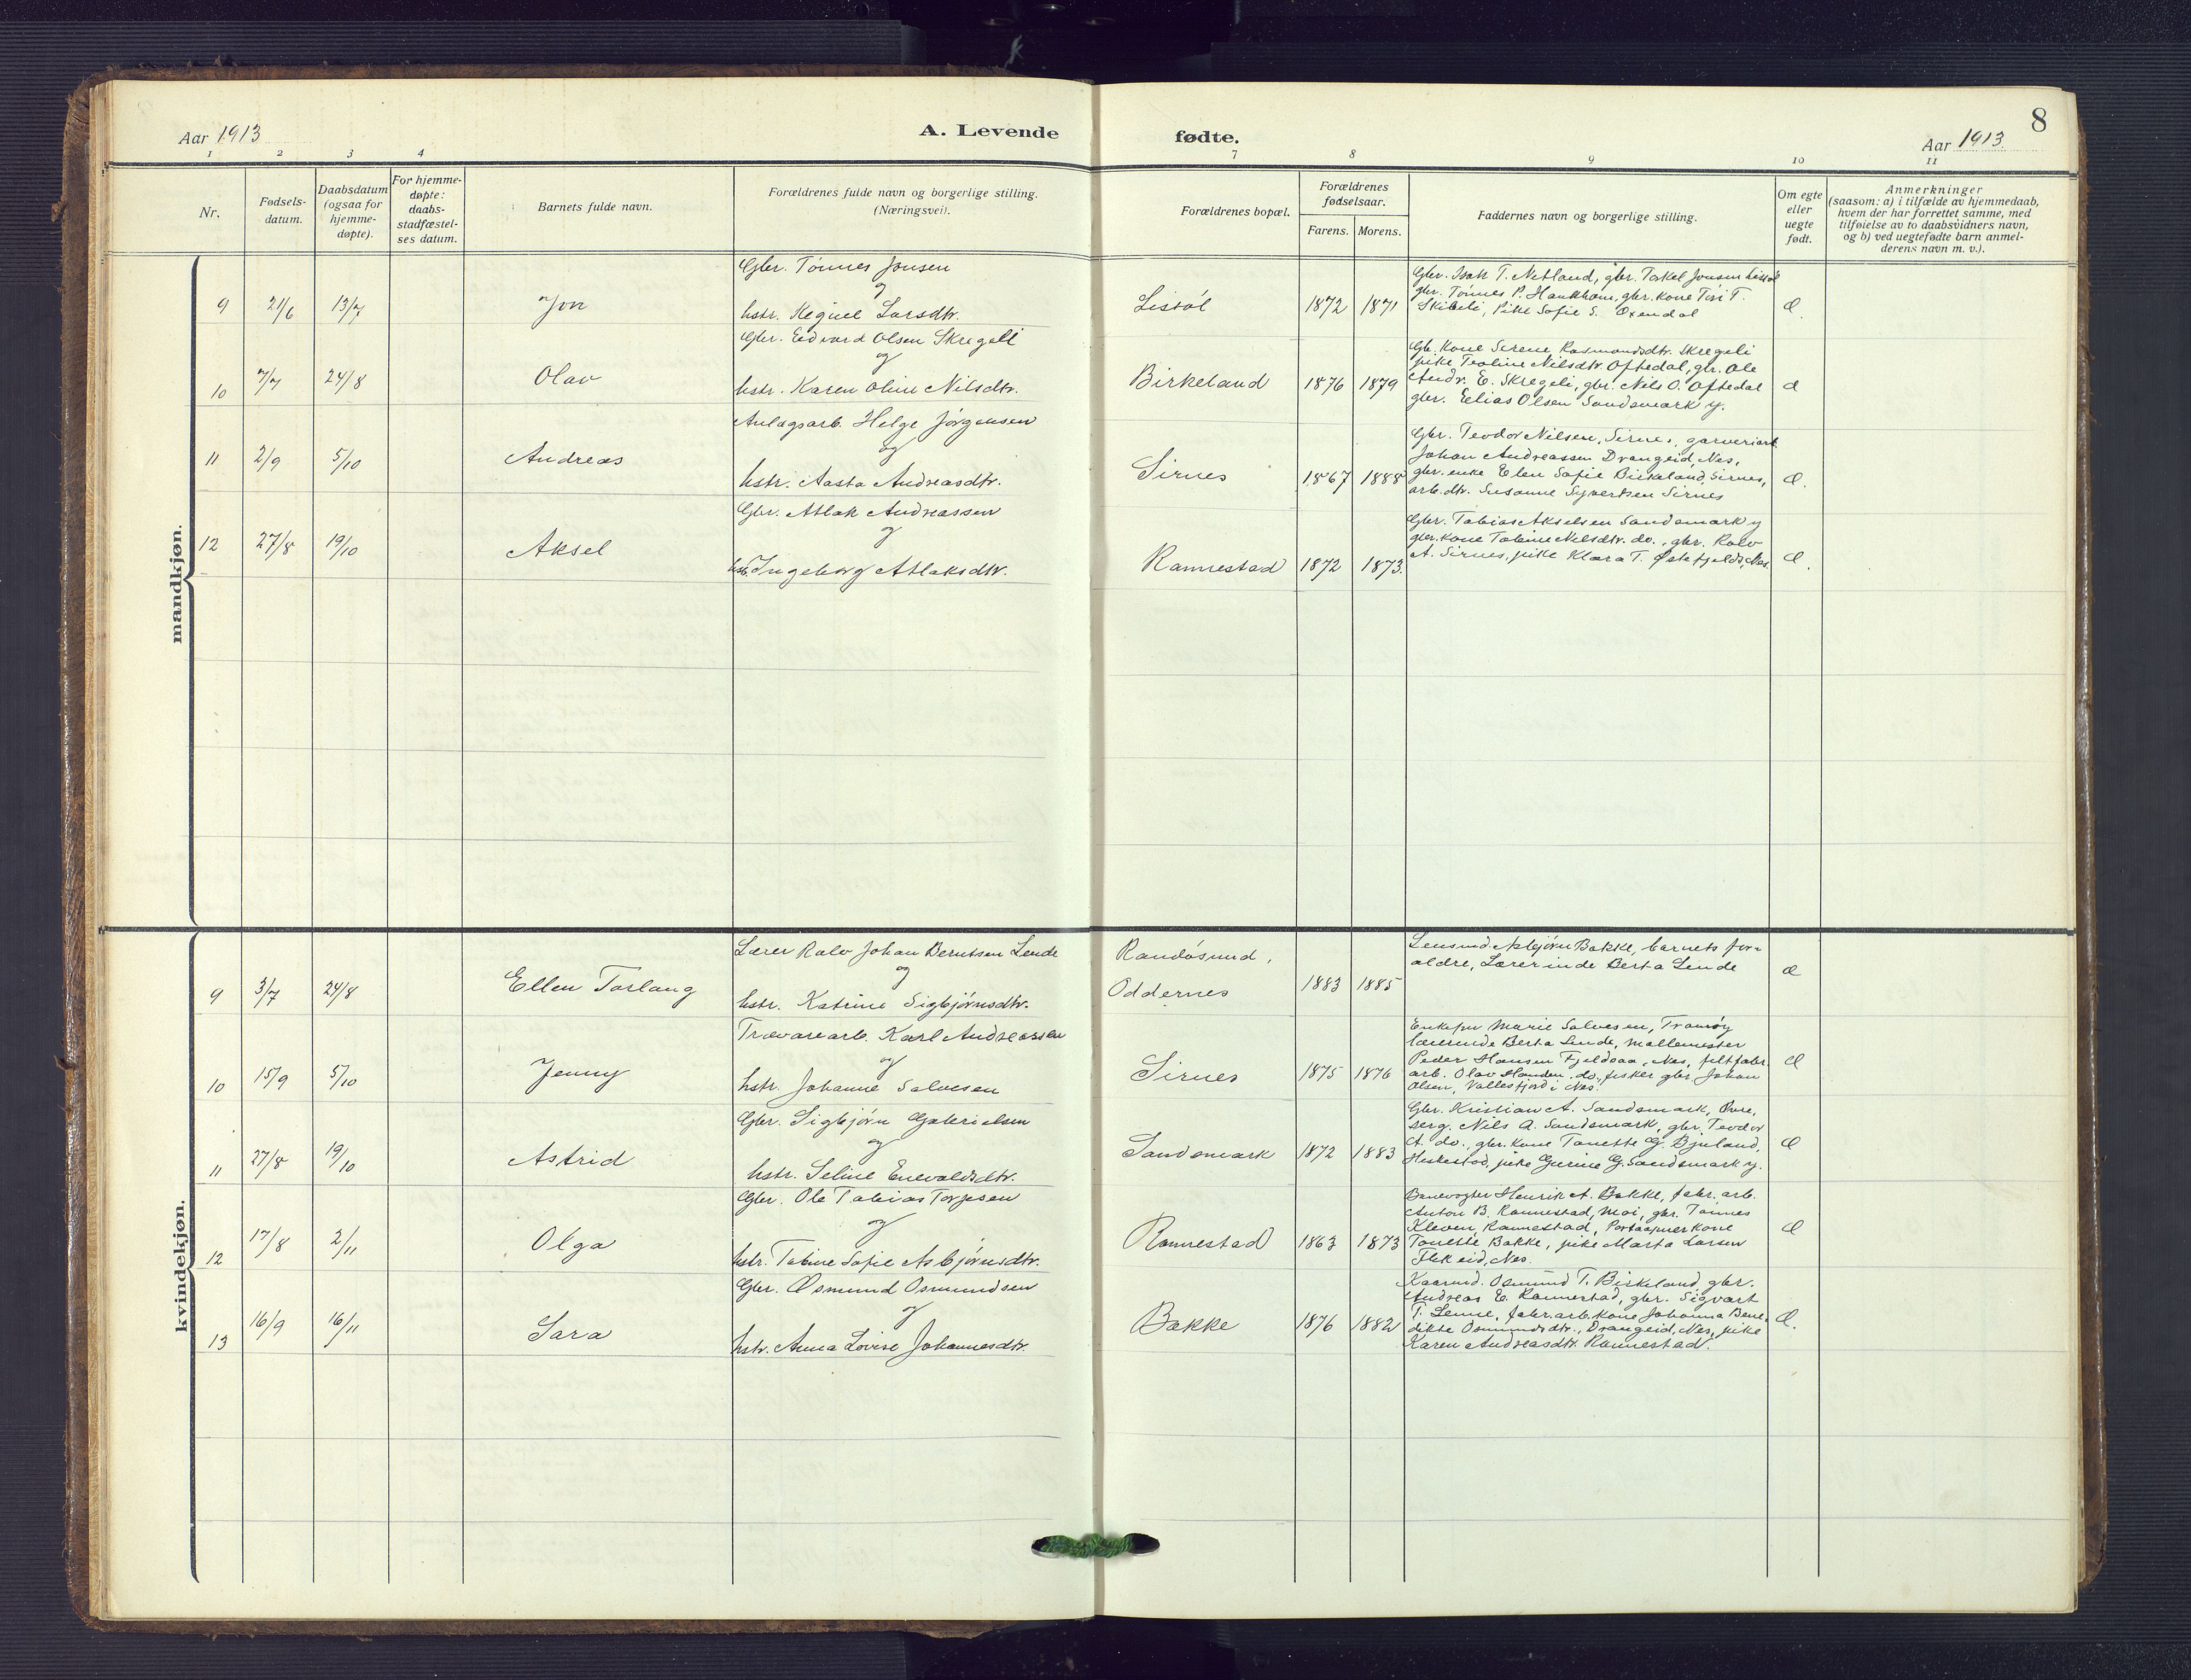 Aar 1913
A. Levende
fødte.
Aar 1913
8
1 2 3 4 7 8 9 10 11
Nr.
Fødsels-
datum.
Daabsdatum
(ogsaa for
hjemme-
døpte).
For hjemme-
døpte:
daabs-
stadfæstel-
ses datum.
Barnets fulde navn.
Forældrenes fulde navn og borgerlige stilling.
(Næringsvei).
Forældrenes bopæl.
Forældrenes
fødselsaar.
Farens. Morens.
Faddernes navn og borgerlige stilling.
Om egte
eller
uegte
født.
Anmerkninger
(saasom: a) i tilfælde av hjemmedaab,
hvem der har forrettet samme, med
tilføielse av to daabsvidners navn,
og b) ved uegtefødte barn anmel-
derens navn m. v.).
mandkjøn.
9 21/6 13/7 Jon
Gbr. Tønnes Jonsen
og
hstr. Larsdtr.
Listøl 1872 1871
Gbr. Isak T. Netland, gbr. Takel Jonsen Listøl
gbr. Tønnes P. Haukhom, gbr. kone Tiri T.
Skibeli, Pike Sofie S. Oxendal
Æ.
10 7/7 24/8 Olav
Gbr. Edvard Olsen Skregeli
og
hstr. Karen Oline Nilsdtr.
Birkeland 1876 1879
Gb. Kone Serene Rasmundsdtr. Skregeli
pike Teoline Nilsdtr. Oftedal, gbr. Ole
Andr. E. Skregeli, gbr. Nils O. Oftedal
gbr. Elias Olsen Sandsmark y.
Æ
11 2/9 5/10 Andreas
Anlægsarb. Helge Jørgensen
og
hstr. Aasta Andreasdtr.
Sirnes 1867 1888
Gbr. Teodor Nilsen, Sirnes, garveriarb.
Johan Andreassen Drangeid, Nes,
gbr. enke Elen Sofie Birkeland, Sirnes,
arb. dtr. Susanne Syvertsen Sirnes
Æ.
12 27/8 19/10 Aksel
Gbr. Atlak Andreassen
og
hstr. Ingeborg Atlaksdtr.
Rannestad 1872 1873.
Gbr. Tobias Akselsen Sandsmark y
gbr. kone Tobine Nilsdtr. do., gbr. Rolv
A. Sirnes, pike Klara T. Østefjelds, Nes.
Æ.
kvindekjøn.
9 3/7 24/8 Ellen Torlaug
Lærer Rolv Johan Berntsen Lende
og
hstr. Katrine Sigbjørnsdtr.
Randøsund,
Oddernes 1883 1885
Lensmd. Asbjørn Bakke, barnets for-
ældre, Lærerinde Berta Lende
Æ
10 15/9 5/10 Jenny
Trævarearb. Karl Andreassen
og
hstr. Johanne Salvesen
Sirnes 1875 1876
Enkefru Marie Salvesen, Tromøy
lærerinde Berta Lende, møllemester
Peder Hansen Fjeldsaa, Nes, filtfabr.
arb. Olav do, fisker gbr. Johan
Olsen, i Nes.
Æ
11 27/8 19/10 Astrid
Gbr. Sigbjørn Gabrielsen
og
hstr. Seline Enevoldsdtr.
Sandsmark 1872 1883
Gbr. Kristian A. Sandsmark, Øvre,
serg. Nils A. Sandsmark, gbr. Teodor
A. do., gbr. kone Tonette G. Bjuland,
Heskestad, pike Gurine G. Sandsmark y.
Æ
12 17/8 2/11 Olga
Gbr. Ole Tobias Torjesen
og
hstr. Tobine Sofie Asbjørnsdtr.
Rannestad 1863 1873
Banevogter Henrik A. Bakke, fabr. arb.
Anton B. Rannestad, Moi, gbr. Tønnes
Kleven, Rannestad, kone
Tonette Bakke, pike Marta Larsen
Flikeid, Nes.
Æ
13 16/9 16/11 Sara
Gbr. Osmund Osmundsen
og
hstr. Anna Lovise Johannesdtr.
Bakke 1876 1882
Kaarmd. Osmund T. Birkeland, gbr.
Andreas E. Rannestad, gbr. Sigvart
T. Lenne, fabr. arb. kone Johanna Bene-
dikte Osmundsdtr., Drangeid, Nes, pike
Karen Andreasdtr. Rannestad.
Æ.